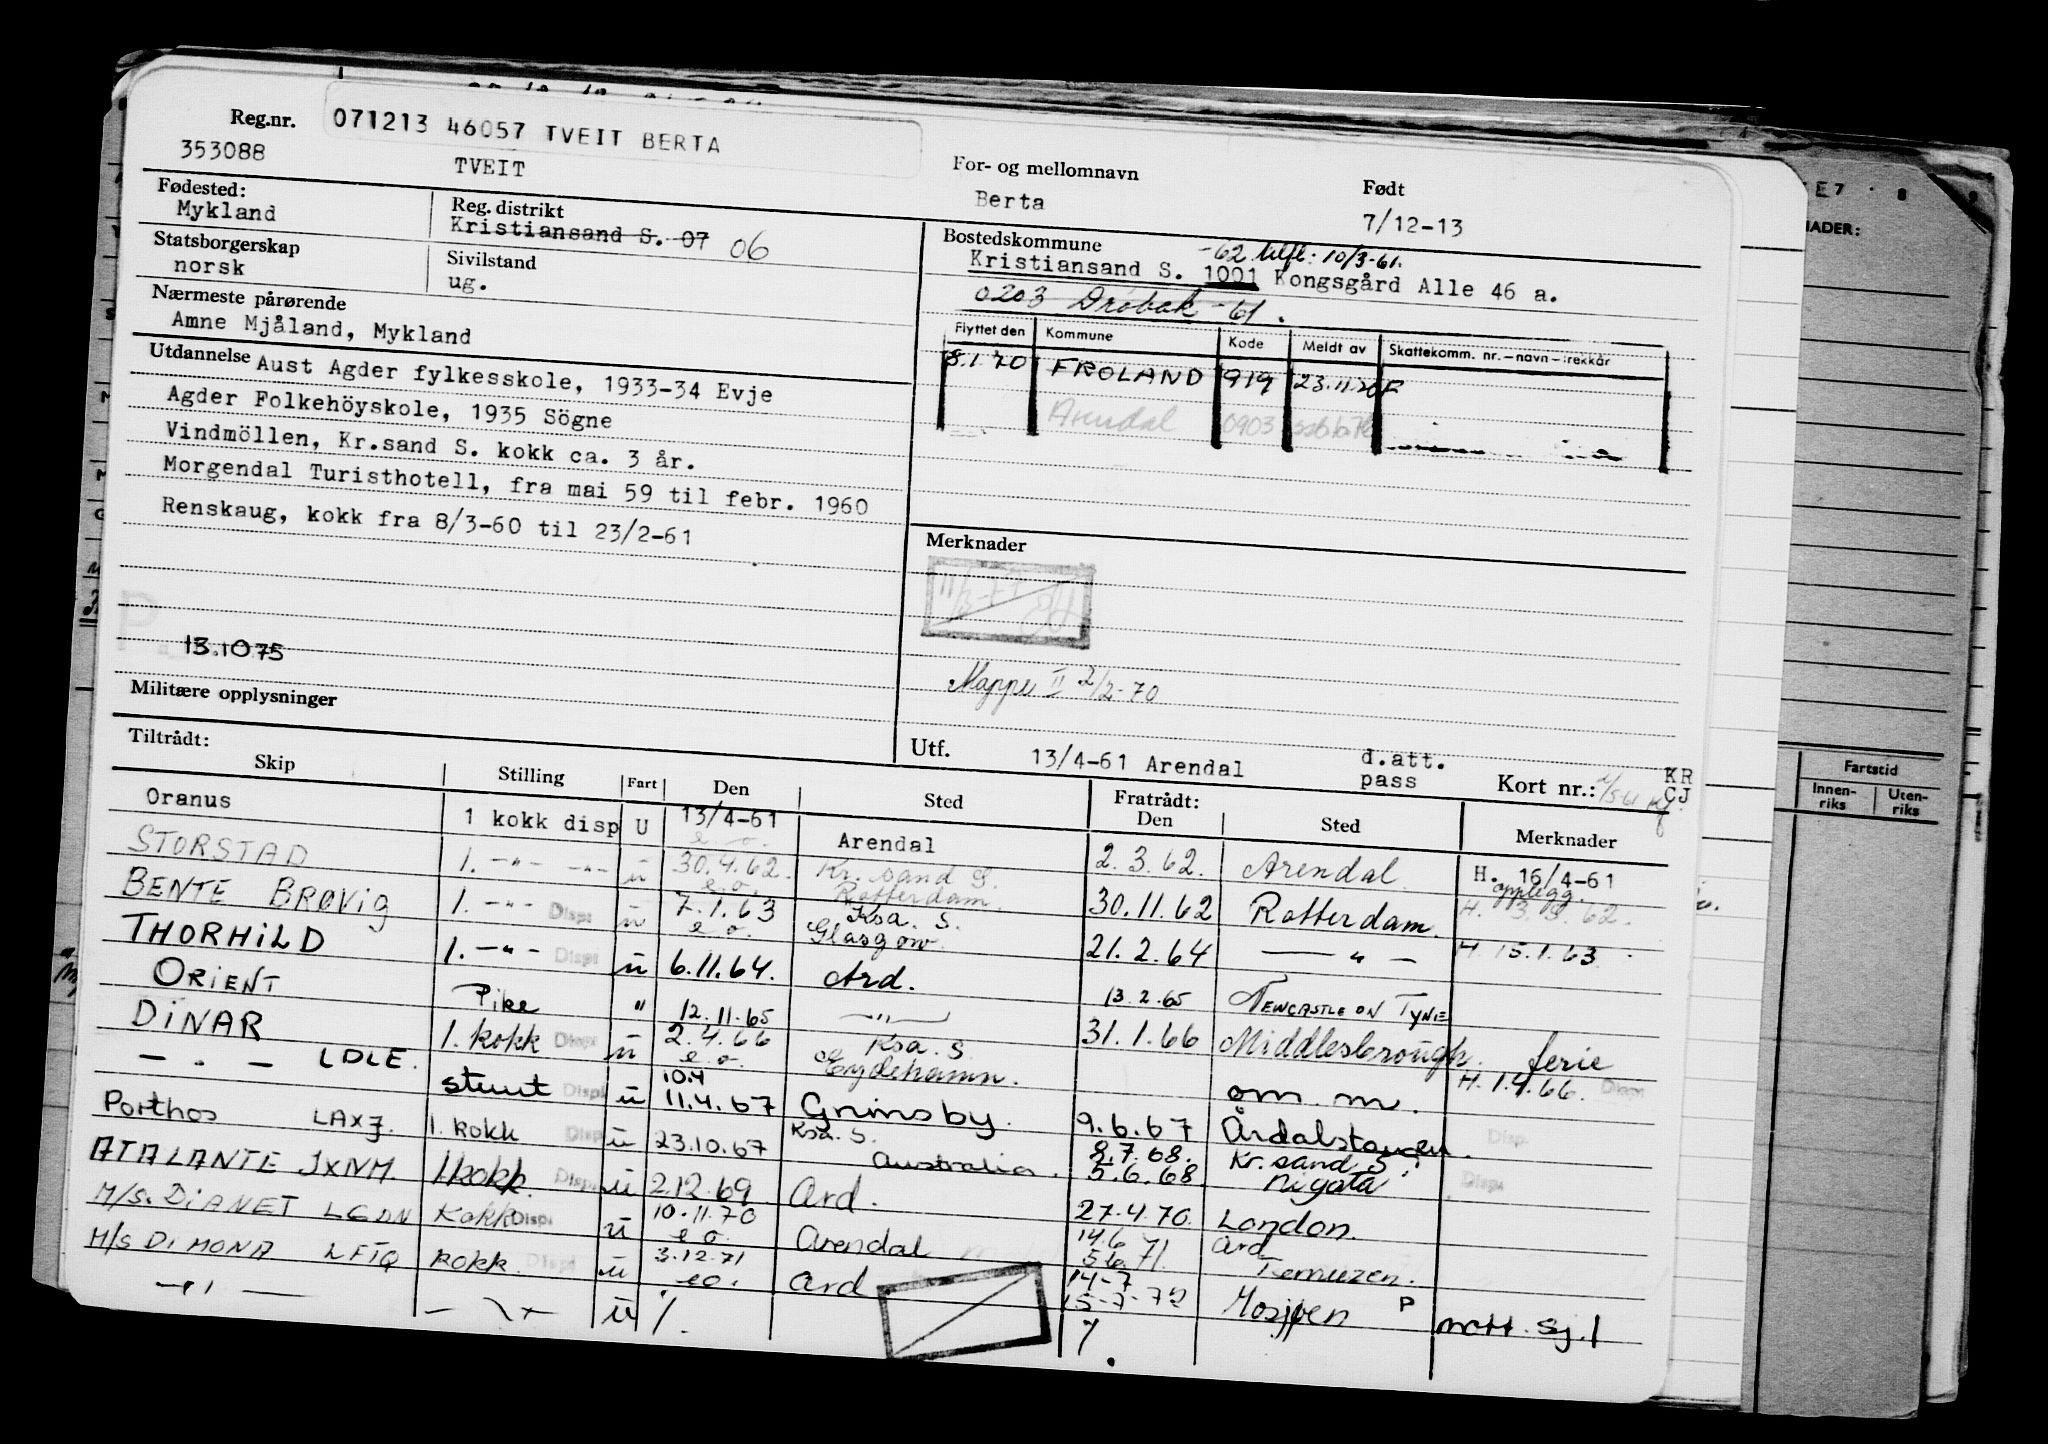 Reg.nr. 071213 46057 TVEIT BERTA
353088 TVEIT
For- og mellomnavn
Berta
Født
7/12-13
Fødested:
Mykland
Reg. distrikt
Kristiansand S. 07 06
Statsborgerskap
norsk
Sivilstand
ug.
Nærmeste pårørende
Amne Mjåland, Mykland
Utdannelse Aust Agder fylkesskole, 1933-34 Evje
Agder Folkehöyskole, 1935 Sögne
Vindmöllen, Kr.sand S. kokk ca. 3 år.
Morgendal Turisthotell, fra mai 59 til febr. 1960
Renskaug, kokk fra 8/3-60 til 23/2-61
13.1075
Militære opplysninger
Bostedskommune -62 tilfl: 10/3-61.
Kristiansand S. 1001 Kongsgård Alle 46 a.
0203 Drøbak -61.
Flyttet den Kommune Kode Meldt av Skattekomm. nr.-navn-trekkår
8.1.70 FROLAND 919 23.11.70F
Arendal 0903
Merknader
Mappe II 2/2-70
Utf. 13/4-61 Arendal d.att. pass Kort nr.: KR CJ
Tiltrådt:
Skip Stilling Fart Den Sted Fratrådt: Den Sted Merknader
Oranus 1 kokk disp U 13/4-61 Arendal 2.3.62. Arendal H. 16/4-61
e.o. opplegg.
STORSTAD 1. -"- -"- ü 30.4.62. Kr. sand S. 30.11.62 Rotterdam. H. 3.5.62.
e.o. Rotterdam.
BENTE BRØVIG 1. -"- Disp: ü 7.1.63 Ksa. S. 21.2.64 — " — H. 15.1.63
e.o. Glasgow.
THORHILD 1. -"- Disp: ü 6.11.64. Ard. 13.2.65 NEWCASTLE ON TYNE
ORIENT Pike " 12.11.65 —"— 31.1.66 Middlesbrough. ferie
DINAR 1. kokk Disp: ü 2.4.66 Ksa. S. H. 1.4.66. Disp:
e.o. Eydehamn.
— " — LDLE. stuert Disp: ü 10.4 11.4.67 Grimsby. om. m.
9.6.67 Årdalstangen. Disp.
Porthos LAXJ. 1. kokk Disp: ü 23.10.67 Ksa. S. Australia. 8.7.68. Kr.sand S.
5.6.68 Nigata Disp:
ATALANTE JXNM. 1 kokk. Disp: ü 2.12.69 Ard. 27.4.70. London.
M/S. DIANET LGDN Kokk Disp: ü 10.11.70 e.o. Arendal 14.6 71. Ard
Terneuzen.
M/S DIMONA LFIQ kokk. Disp: ü 3.12.71 eo. Ard 14-7
15-7-72 Mosjøen P mott. Sj.
—"— ü
Fartstid
Innenriks Utenriks